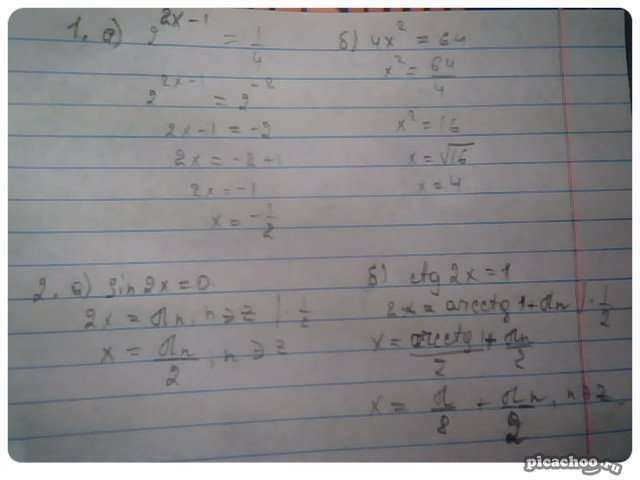 1. а) 2^{2x-1} = 1/4
2^{2x-1} = 2^{-2}
2x-1 = -2
2x = -2+1
2x = -1
x = -1/2
б) 4x² = 64
x² = 64/4
x² = 16
x = √16
x = 4
2. а) sin 2x = 0
2x = πn, n ∋ z | · 1/2
x = πn/2, n ∋ z
б) ctg 2x = 1
2x = arcctg 1 + πn | · 1/2
x = arcctg 1/2 + πn/2
x = π/8 + πn/2, n ∋ z
picachoo.ru